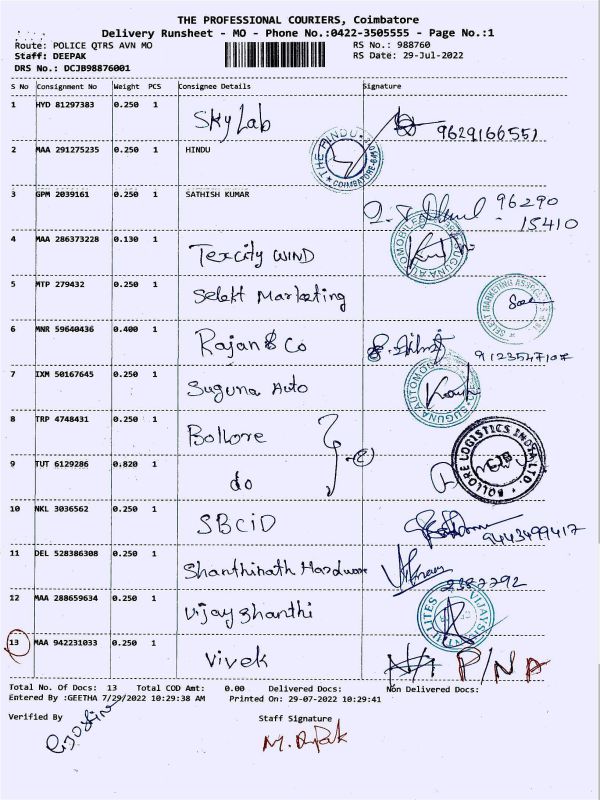 THE PROFESSIONAL COURIERS, Coimbatore
Delivery Runsheet - MO - Phone No.:0422-3505555 - Page No.:1
Route: POLICE QTRS AVN MO RS No.: 988760
Staff: DEEPAK RS Date: 29-Jul-2022
DRS No.: DCJB98876001
S No Consignment No Weight PCS Consignee Details Signature
1 HYD 81297383 0.250 1 Sky Lab 9629166551
2 MAA 291275235 0.250 1 HINDU THE HINDU COIMBATORE
3 GPM 2039161 0.250 1 SATHISH KUMAR 96290
15410
4 MAA 286373228 0.130 1 Texcity WIND SUGUNA AUTOMOBILE
5 MTP 279432 0.250 1 Selekt Marketing SELEKT MARKETING
6 MNR 59640436 0.400 1 Rajan & Co 9123547107
7 IXM 50167645 0.250 1 Suguna Auto SUGUNA AUTOMO
8 TRP 4748431 0.250 1 Bollore BOLLORE LOGISTICS INDIA LTD. CJB
9 TUT 6129286 0.820 1 do
10 NKL 3036562 0.250 1 SBCID 9443499417
11 DEL 528386308 0.250 1 Shanthinath Hardware 2382292
12 MAA 288659634 0.250 1 Vijay Shanthi
13 MAA 942231033 0.250 1 Vivek N/A P/NA
Total No. Of Docs: 13 Total COD Amt: 0.00 Delivered Docs: Non Delivered Docs:
Entered By :GEETHA 7/29/2022 10:29:38 AM Printed On: 29-07-2022 10:29:41
Verified By Staff Signature